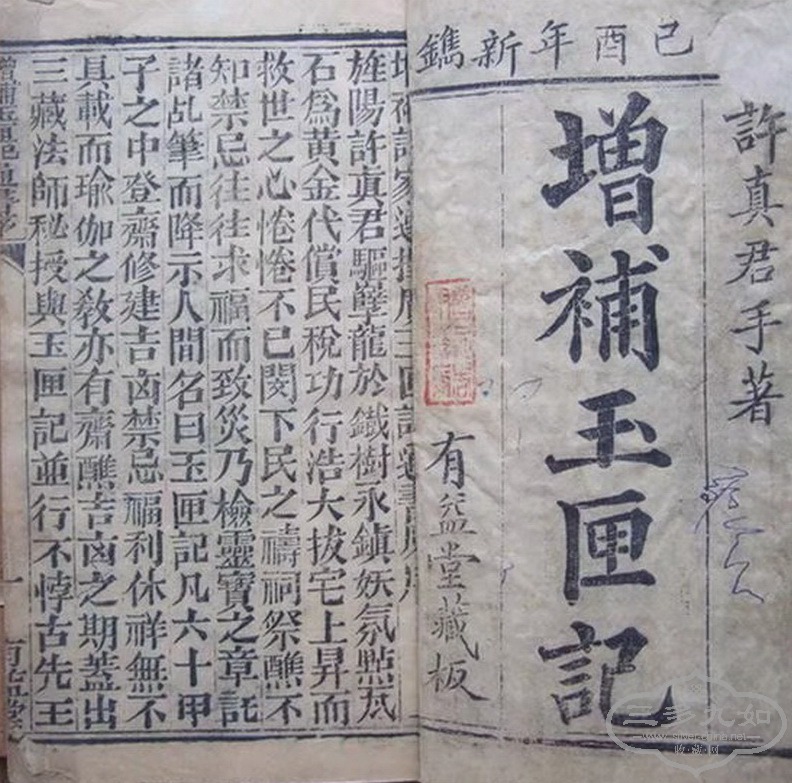 己酉年新鐫
許真君手著
增補玉匣記
有益堂藏板
增補諸家選擇廣玉匣記通書
旌陽許眞君驅孽龍於鐵樹永鎮妖氛點瓦
石爲黃金代償民稅功行浩大拔宅上昇而
救世之心惓惓不已閔下民之禱祠祭醮不
知禁忌往往求福而致災乃檢靈寶之章託
諸乩筆而降示人間名曰玉匣記凡六十甲
子之中登齋修建吉㐫禁忌福利休祥無不
具載而瑜伽之敎亦有齋醮吉㐫之期蓋出
三藏法師秘授與玉匣記並行不悖古先王
增補玉匣記通書
一
有益堂
三多九如
收藏网